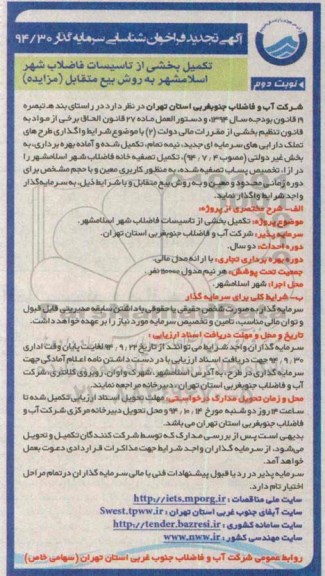 آگهی تجدید فراخوان شناسایی سرمایه گذار ۹۴/۳۰
تکمیل بخشی از تاسیسات فاضلاب شهر
اسلامشهر به روش بیع متقابل (مزایده)
نوبت دوم
شرکت آب و فاضلاب جنوبغربی استان تهران در نظر دارد در راستای بند هـ تبصره
۱۹ قانون بودجه سال ۱۳۹۴، و دستورالعمل ماده ۲۷ قانون الحاق برخی از مواد به
قانون تنظیم بخشی از مقررات مالی دولت (۲) با موضوع شرایط واگذاری طرح های
تملک دارایی های سرمایه ای جدید، نیمه تمام، تکمیل شده و آماده بهره برداری، به
بخش غیر دولتی (مصوب ۹۴/۰۷/۰۴)، تکمیل تصفیه خانه فاضلاب شهر اسلامشهر را
در ازاء تخصیص پساب تصفیه شده، به منظور کاربری معین و با حجم مشخص برای
دوره زمانی محدود و معین و به روش بیع متقابل و با شرایط ذیل، به سرمایه گذار
واجد شرایط واگذار نماید.
الف- شرح مختصری از پروژه:
موضوع پروژه: تکمیل بخشی از تاسیسات فاضلاب شهر اسلامشهر.
سرمایه پذیر: شرکت آب و فاضلاب جنوبغربی استان تهران.
دوره احداث: دو سال.
دوره بهره برداری تجاری: با ارائه مدل مالی.
جمعیت تحت پوشش: هر نیم مدول نفر
محل اجرا: شهر اسلامشهر.
ب- شرایط کلی برای سرمایه گذار
سرمایه گذار به صورت شخص حقیقی یا حقوقی با داشتن سابقه مدیریتی قابل قبول
و توان مالی مناسب، تامین و تخصیص سرمایه مورد نیاز را بر عهده خواهد داشت.
تاریخ و محل و مهلت دریافت اسناد ارزیابی:
سرمایه گذاران واجد شرایط می توانند از تاریخ ۹۴/۹/۲۲ لغایت پایان وقت اداری
۹۴/۹/۳۰ جهت دریافت اسناد ارزیابی با در دست داشتن نامه اعلام آمادگی جهت
سرمایه گذاری در طرح، به آدرس اسلامشهر، شهرک واوان، روبروی کلانتری، شرکت
آب و فاضلاب جنوبغربی استان تهران، دبیرخانه مراجعه نمایند.
محل و زمان تحویل مدارک درخواستی: مهلت تحویل اسناد ارزیابی تکمیل شده تا
ساعت ۱۴ روز دوشنبه مورخ ۹۴/۱۰/۱۴ و محل تحویل دبیرخانه مرکزی شرکت آب و
فاضلاب جنوبغربی استان تهران می باشد.
بدیهی است پس از بررسی مدارک که توسط شرکت کنندگان تکمیل و تحویل
می شود، از سرمایه گذاران واجد شرایط جهت مذاکرات قراردادی دعوت بعمل
خواهد آمد.
سرمایه پذیر در رد یا قبول پیشنهادات فنی یا مالی سرمایه گذاران در تمام مراحل
اختیار تام دارد.
سایت ملی مناقصات: http://iets.mporg.ir
سایت آبفای جنوب غربی استان تهران: Swest.tpww.ir
سایت سامانه کشوری: http://tender.bazresi.ir
سایت مهندسی کشور: www.nww.ir
روابط عمومی شرکت آب و فاضلاب جنوب غربی استان تهران (سهامی خاص)